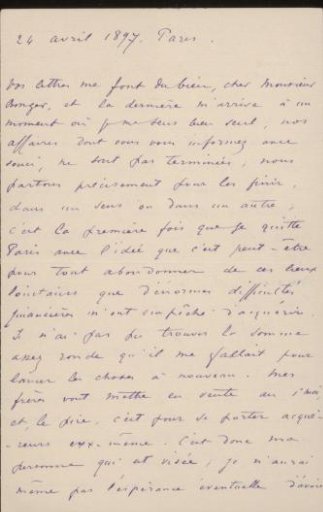 24 avril 1897. Paris.
Vos lettres me font du bien, cher Monsieur
Bonger, et la dernière m'arrive à un
moment où je me sens bien seul, nos
affaires dont vous vous informez avec
souci, ne sont pas terminées, nous
partons précisement pour les finir,
dans un sens ou dans un autre,
c'est la première fois que je quitte
Paris avec l'idée que c'est peut-être
pour tout abandonner de ces lieux
que d'énormes difficultés
financières m'ont empêché d'acquérir.
Je n'ai pas pu trouver la somme
assez ronde qu'il me fallait pour
les choses à nouveau. Mes
frères vont mettre en vente au
et le pire, c'est pour se porter acqué
-reurs eux-même. C'est donc ma
personne qui est visée, je n'aurai
même pas l'espérance éventuelle d'avoir